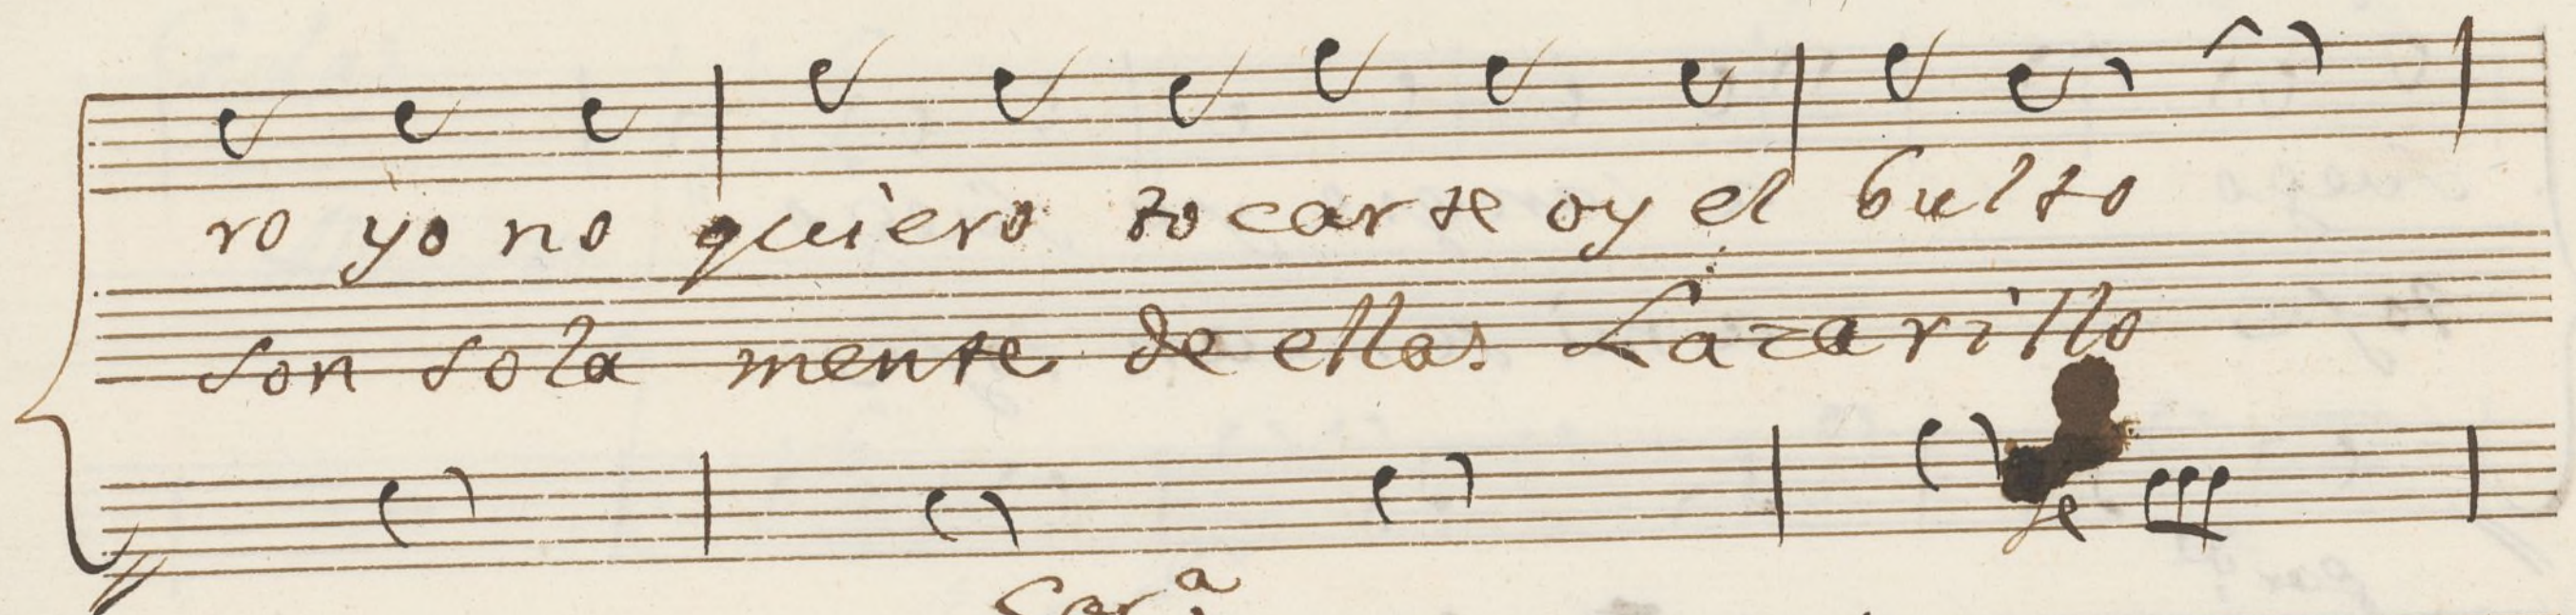 ro yo no quiero tocarte oy el bulto
son sola mente de ellas Lazarillo
fe
Sar.ª